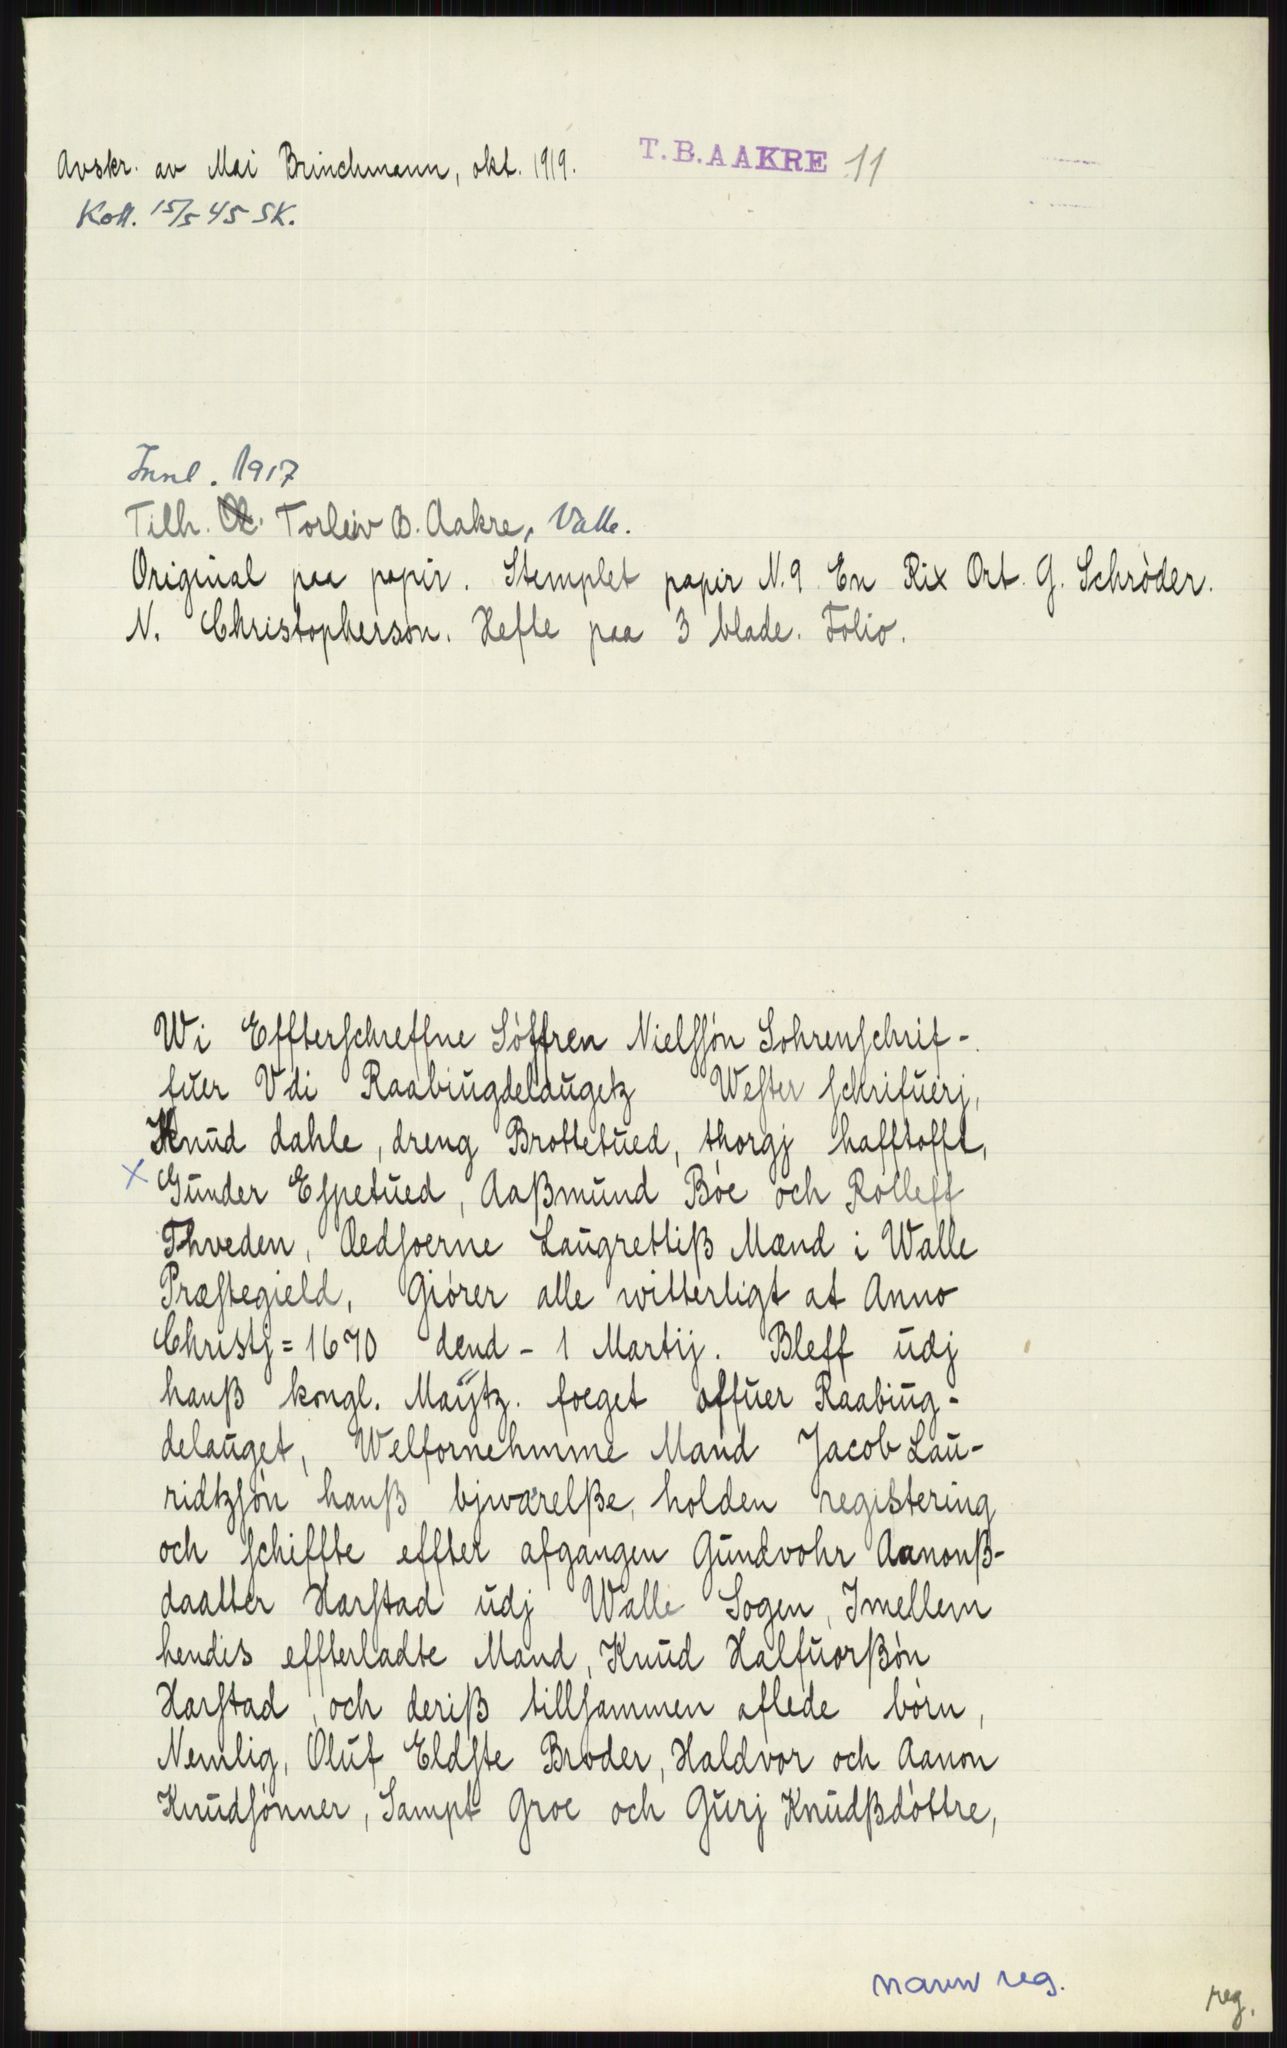 Avskr. av Mai Brinchmann, okt. 1919.
T.B. AAKRE 11
Koll. 15/5 45 SK.
Innl. 1917
Tilh. Torleiv B. Aakre, Valle.
Original paa papir. Stemplet papir N. 9 En Rix Ort. G. Schröder.
N. Christopherson. Hefte paa 3 blade. Folio.
Wi Effterschreffne Söffren Nielssön Sohrenschrif-
fuer Vdi Raabiugdelaugetz Wester schrifuerj,
Knud dahle, dreng Brottetued, thorgj hafftofft,
x Gunder Espetued, Aaßmund Böe och Rolleff
Thveden, Aedsoerne Laugrettiß Mænd i Walle
Præstegield, Giörer alle witterligt at Anno
Christj = 1670 dend - 1 Martij. Bleff udj
hanß kongl. Maÿtz. foeget offuer Raabiug-
delauget, Welfornehmme Mand Jacob Lau-
ridtzsön hanß bjwærelße, holden registering
och schiffte effter afgangen Gundvohr Aanonß-
daatter Harstad udj Walle Sogen, Imellem
hendis effterladte Mand, Knud Halfuorßön
Harstad, och deriß tillsammen aflede börn,
Nemlig, Oluf Eldste Broder, Haldvor och Aanon
Knudsönner, Sampt Groe och Gurj Knudßdöttre,
navn reg.
reg.